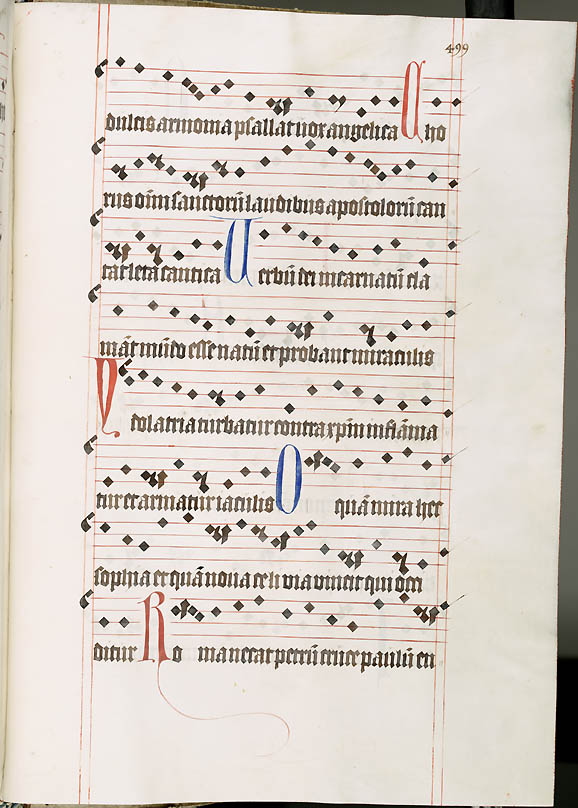 499
dulcis armonia psallat vox angelica Cho
rus oīm sanctorū laudibus apostolorū can
tat leta cantica Verbū dei incarnatū cla
māt mūdo esse natū et probant miraculis
Ydolatria turbatur contra xp̄m inflāma
tur et armatur iaculis O quā mira hec
sophia et quā noua celi via vincit qui occi
ditur Roma necat petrū cruce paulū en